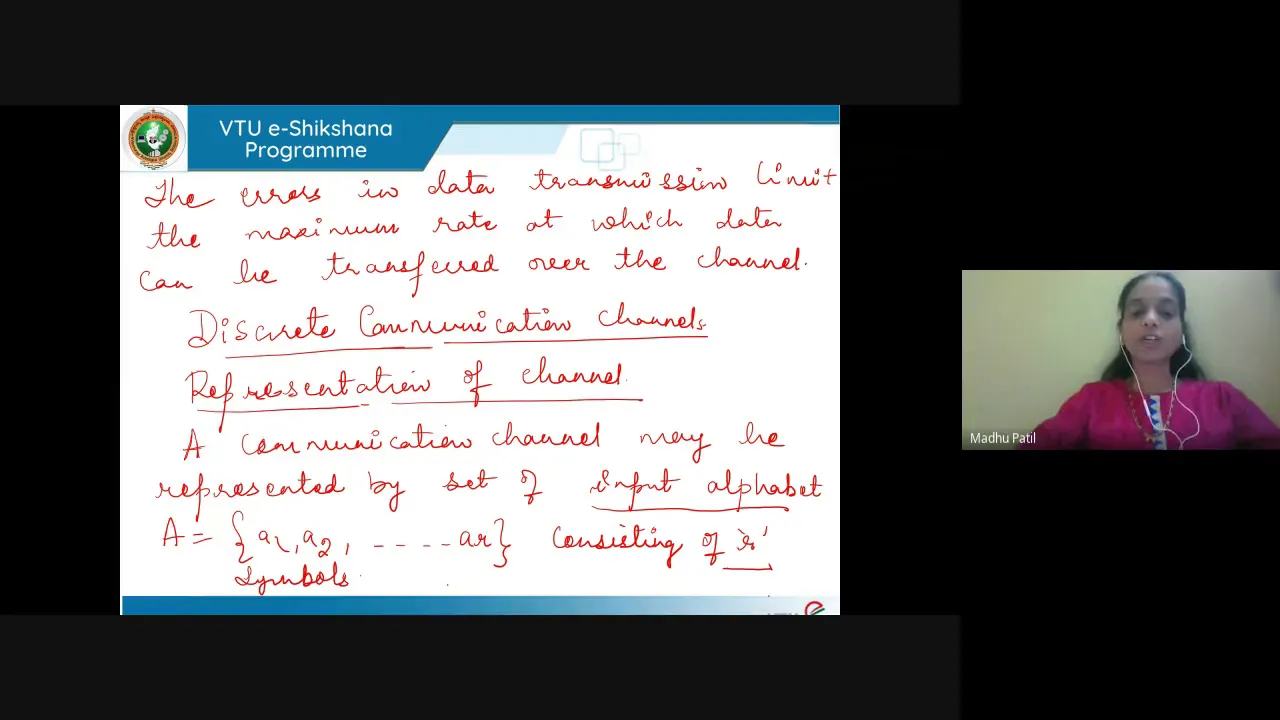 VTU e-Shikshana
Programme
The errors in data transmission limit
the maximum rate at which data
can be transferred over the channel.
Discrete Communication channels.
Representation of channel.
A communication channel may be
represented by set of input alphabet
A = {a1, a2, ---- ar} consisting of 'r'
symbols
Madhu Patil